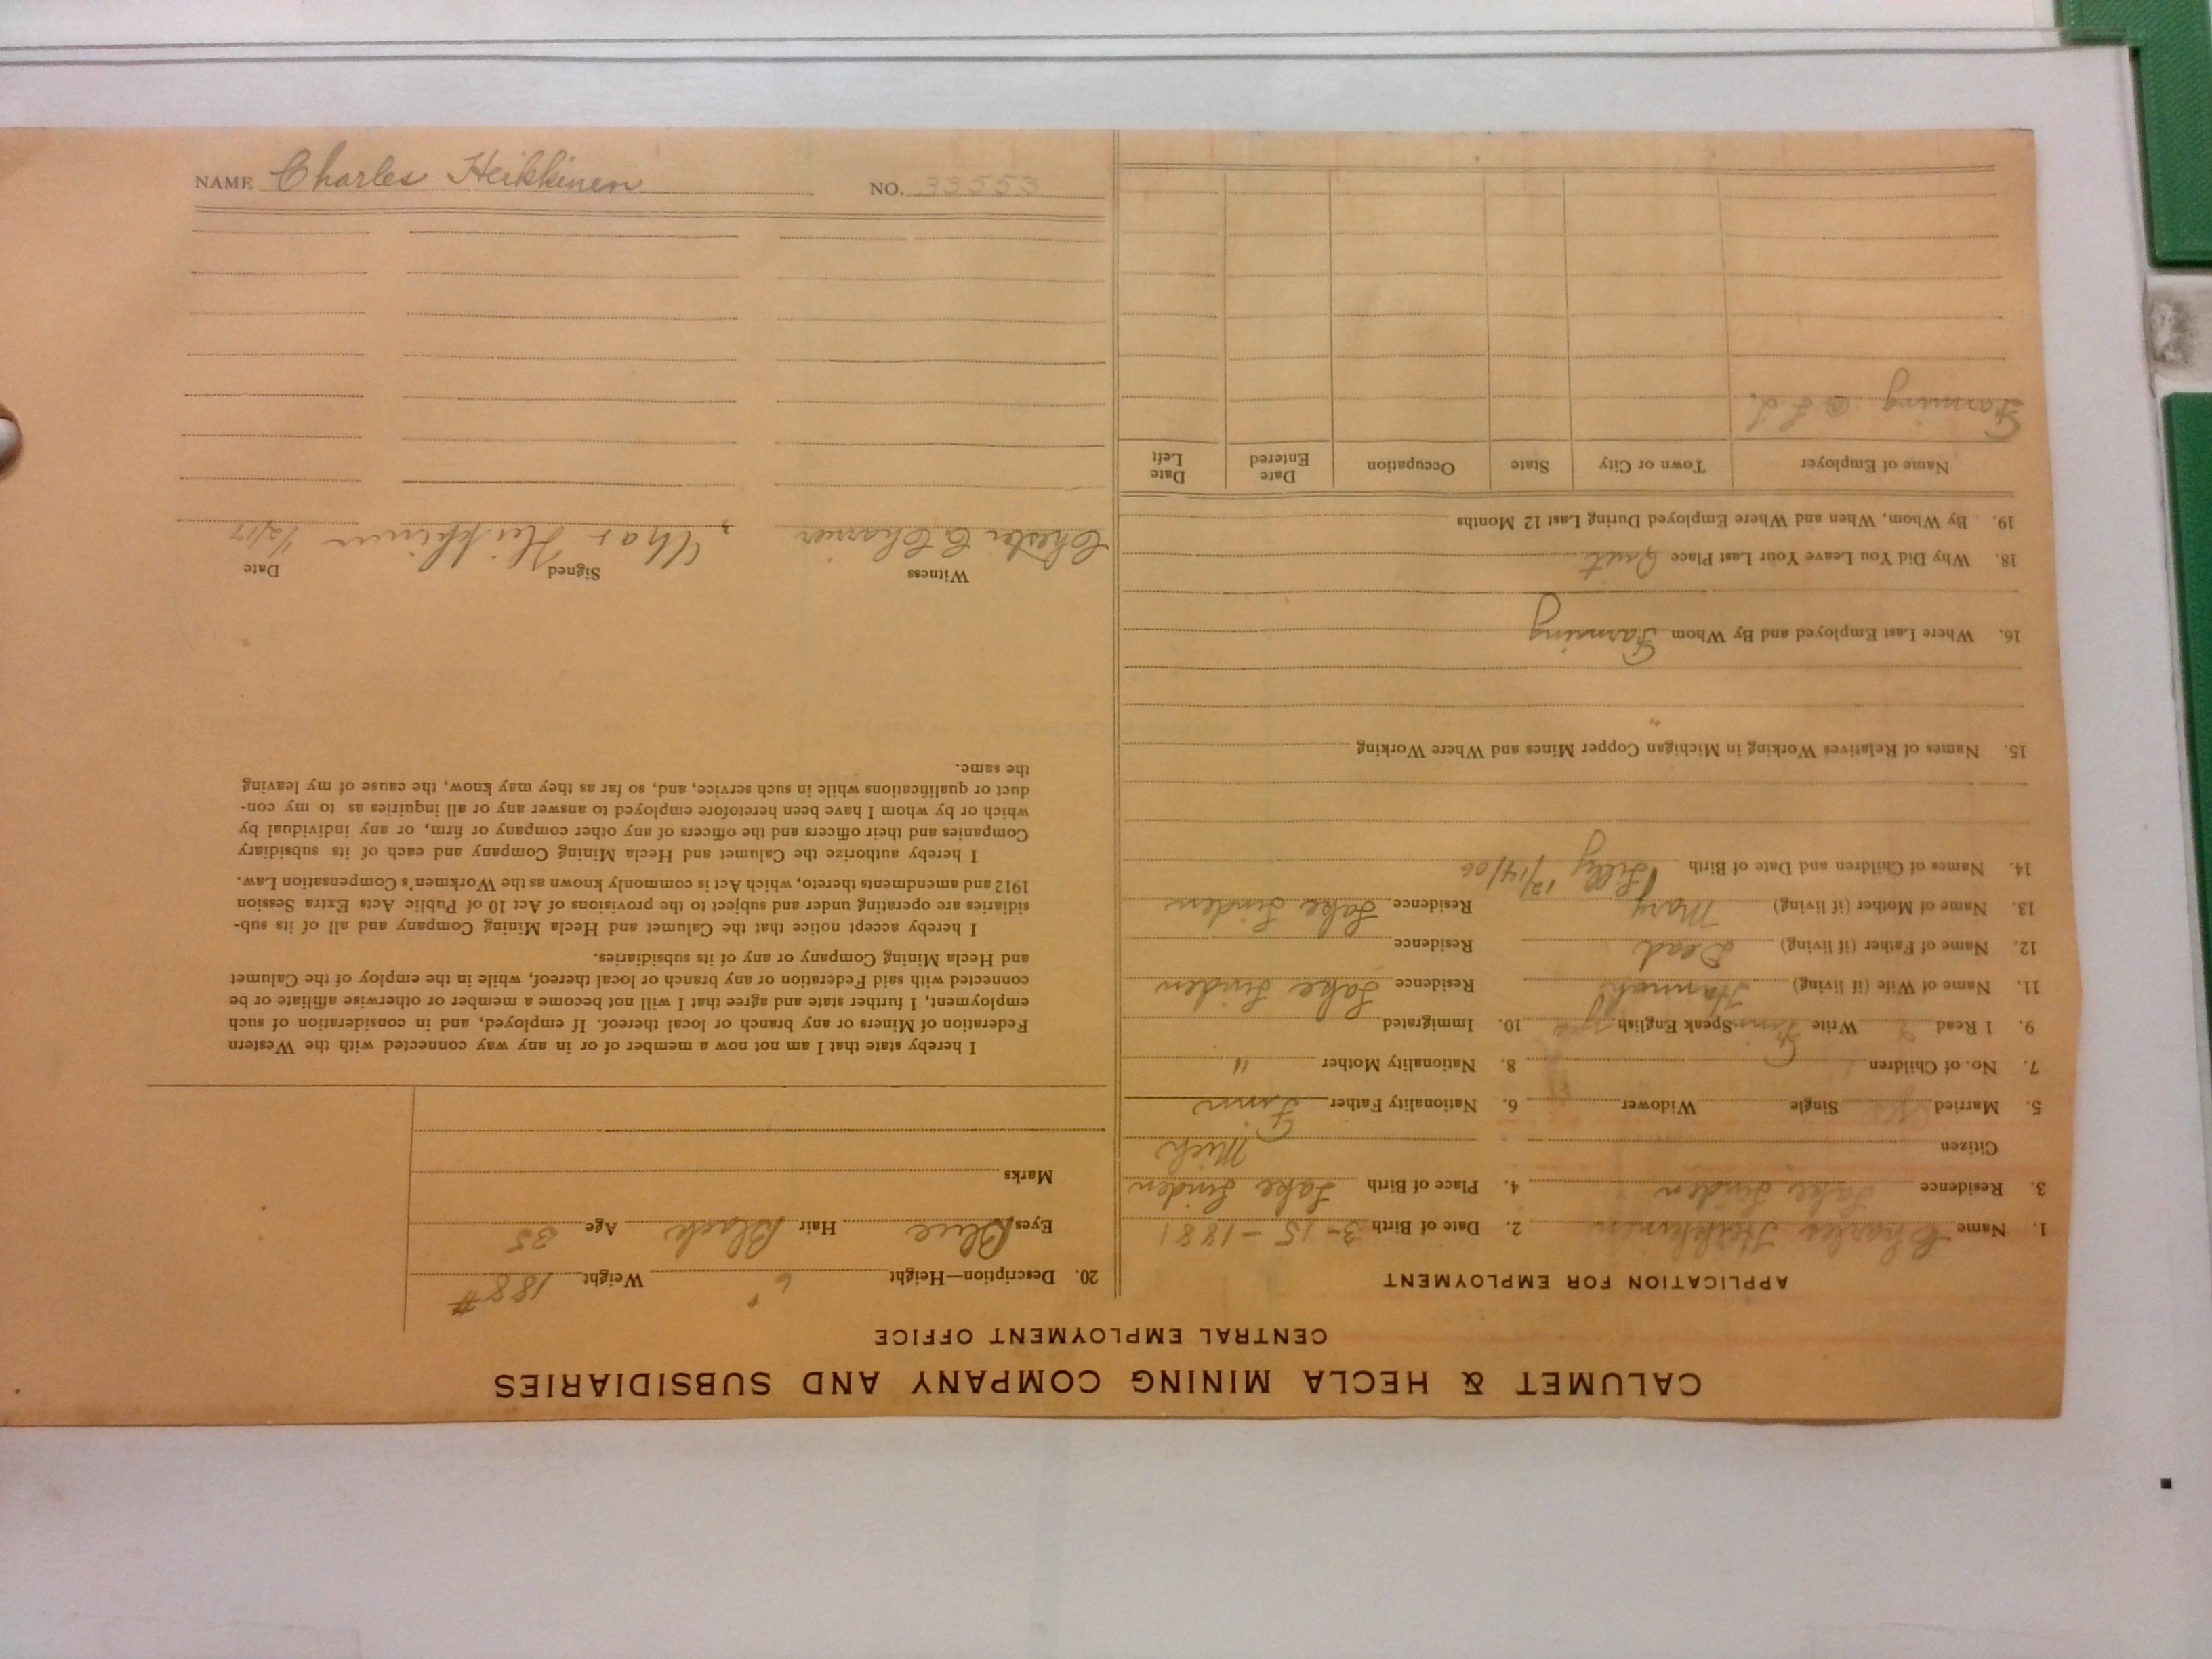 NAME Charles Heikkinen NO. 33553
CALUMET & HECLA MINING COMPANY AND SUBSIDIARIES
CENTRAL EMPLOYMENT OFFICE
APPLICATION FOR EMPLOYMENT
1. Name Charles Heikkinen 2. Date of Birth 3-15-1881
3. Residence Lake Linden 4. Place of Birth Lake Linden
Citizen Mich
5. Married yes Single Widower 6. Nationality Father Finn
7. No. of Children 8. Nationality Mother "
9. I Read Write Finn Speak English yes 10. Immigrated
11. Name of Wife (if living) Hannah Residence Lake Linden
12. Name of Father (if living) Dead Residence
13. Name of Mother (if living) Mary Residence Lake Linden
14. Names of Children and Date of Birth Lilly 12/14/06
15. Names of Relatives Working in Michigan Copper Mines and Where Working
16. Where Last Employed and By Whom Farming
18. Why Did You Leave Your Last Place Quit
19. By Whom, When and Where Employed During Last 12 Months
Name of Employer Town or City State Occupation Date Entered Date Left
Farming @ L L.
20. Description—Height 6' Weight 188#
Eyes Blue Hair Black Age 35
Marks
I hereby state that I am not now a member of or in any way connected with the Western
Federation of Miners or any branch or local thereof. If employed, and in consideration of such
employment, I further state and agree that I will not become a member or otherwise affiliate or be
connected with said Federation or any branch or local thereof, while in the employ of the Calumet
and Hecla Mining Company or any of its subsidiaries.
I hereby accept notice that the Calumet and Hecla Mining Company and all of its sub-
sidiaries are operating under and subject to the provisions of Act 10 of Public Acts Extra Session
1912 and amendments thereto, which Act is commonly known as the Workmen's Compensation Law.
I hereby authorize the Calumet and Hecla Mining Company and each of its subsidiary
Companies and their officers and the officers of any other company or firm, or any individual by
which or by whom I have been heretofore employed to answer any or all inquiries as to my con-
duct or qualifications while in such service, and, so far as they may know, the cause of my leaving
the same.
Witness Signed Date
Chester C Charrier Char Heikkinen 1/2/17